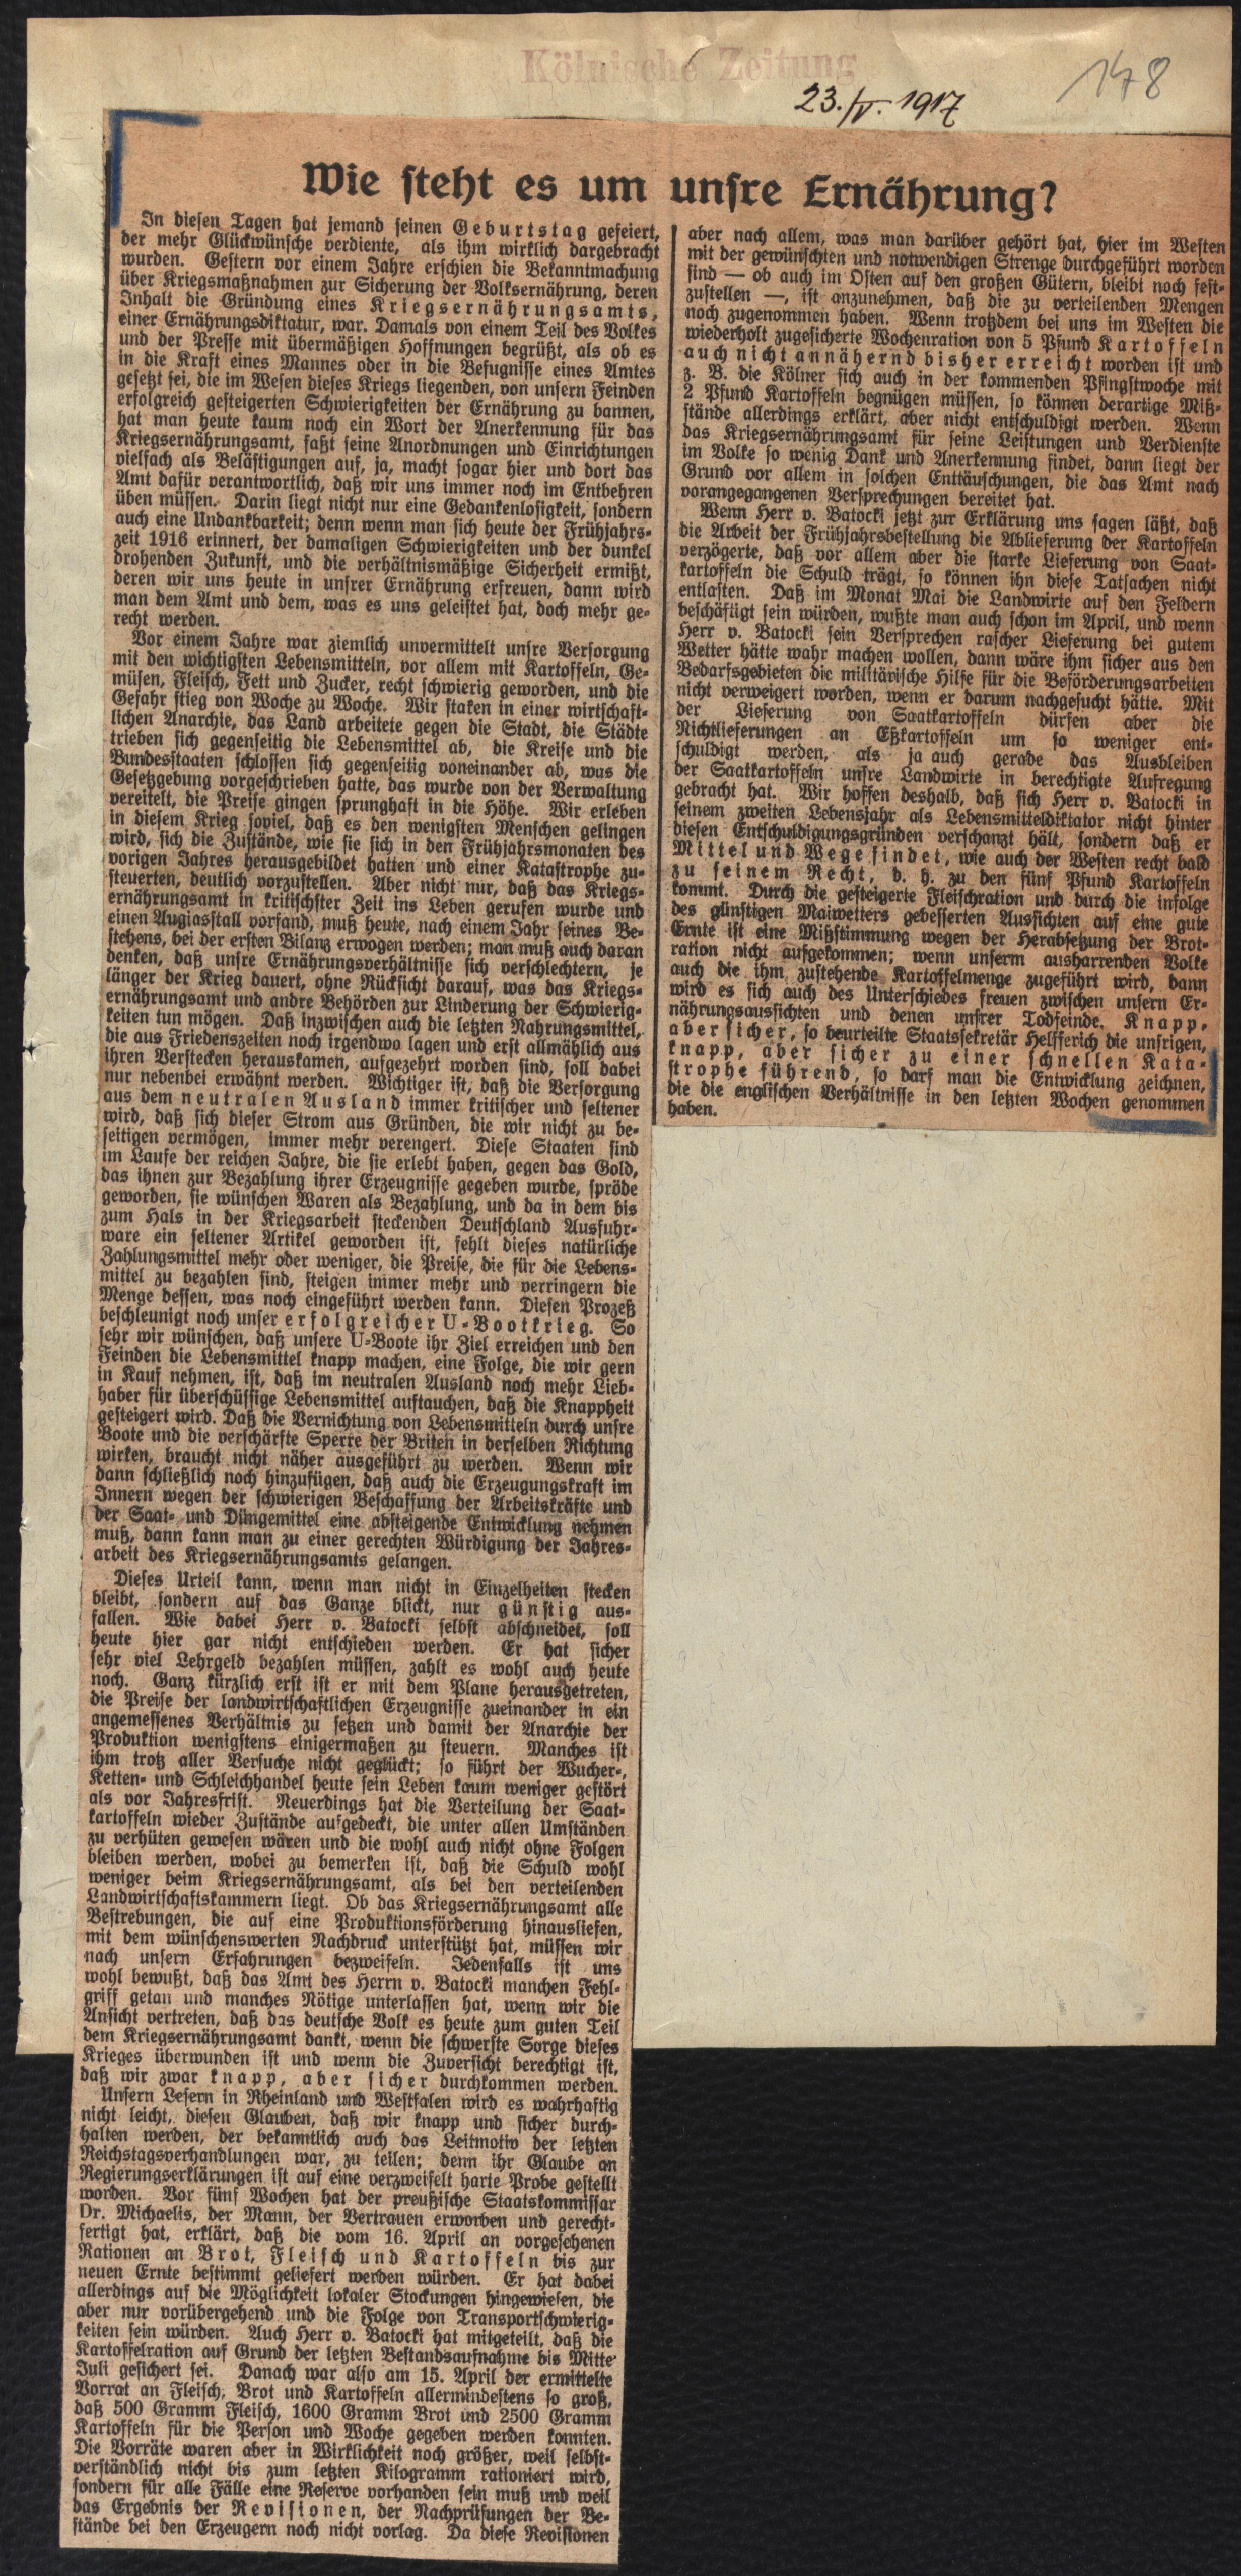 Kölnische Zeitung
23./V. 1917
148
Wie steht es um unsre Ernährung?
In diesen Tagen hat jemand seinen Geburtstag gefeiert,
der mehr Glückwünsche verdiente, als ihm wirklich dargebracht
wurden. Gestern vor einem Jahre erschien die Bekanntmachung
über Kriegsmaßnahmen zur Sicherung der Volksernährung, deren
Inhalt die Gründung eines Kriegsernährungsamts,
einer Ernährungsdiktatur, war. Damals von einem Teil des Volkes
und der Presse mit übermäßigen Hoffnungen begrüßt, als ob es
in die Kraft eines Mannes oder in die Befugnisse eines Amtes
gesetzt sei, die im Wesen dieses Kriegs liegenden, von unsern Feinden
erfolgreich gesteigerten Schwierigkeiten der Ernährung zu bannen,
hat man heute kaum noch ein Wort der Anerkennung für das
Kriegsernährungsamt, faßt seine Anordnungen und Einrichtungen
vielfach als Belästigungen auf, ja, macht sogar hier und dort das
Amt dafür verantwortlich, daß wir uns immer noch im Entbehren
üben müssen. Darin liegt nicht nur eine Gedankenlosigkeit, sondern
auch eine Undankbarkeit; denn wenn man sich heute der Frühjahrs-
zeit 1916 erinnert, der damaligen Schwierigkeiten und der dunkel
drohenden Zukunft, und die verhältnismäßige Sicherheit ermißt,
deren wir uns heute in unsrer Ernährung erfreuen, dann wird
man dem Amt und dem, was es uns geleistet hat, doch mehr ge-
recht werden.
Vor einem Jahre war ziemlich unvermittelt unsre Versorgung
mit den wichtigsten Lebensmitteln, vor allem mit Kartoffeln, Ge-
müsen, Fleisch, Fett und Zucker, recht schwierig geworden, und die
Gefahr stieg von Woche zu Woche. Wir staken in einer wirtschaft-
lichen Anarchie, das Land arbeitete gegen die Stadt, die Städte
trieben sich gegenseitig die Lebensmittel ab, die Kreise und die
Bundesstaaten schlossen sich gegenseitig voneinander ab, was die
Gesetzgebung vorgeschrieben hatte, das wurde von der Verwaltung
vereitelt, die Preise gingen sprunghaft in die Höhe. Wir erleben
in diesem Krieg soviel, daß es den wenigsten Menschen gelingen
wird, sich die Zustände, wie sie sich in den Frühjahrsmonaten des
vorigen Jahres herausgebildet hatten und einer Katastrophe zu-
steuerten, deutlich vorzustellen. Aber nicht nur, daß das Kriegs-
ernährungsamt in kritischster Zeit ins Leben gerufen wurde und
einen Augiasstall vorfand, muß heute, nach einem Jahr seines Be-
stehens, bei der ersten Bilanz erwogen werden; man muß auch daran
denken, daß unsre Ernährungsverhältnisse sich verschlechtern, je
länger der Krieg dauert, ohne Rücksicht darauf, was das Kriegs-
ernährungsamt und andre Behörden zur Linderung der Schwierig-
keiten tun mögen. Daß inzwischen auch die letzten Nahrungsmittel,
die aus Friedenszeiten noch irgendwo lagen und erst allmählich aus
ihren Verstecken herauskamen, aufgezehrt worden sind, soll dabei
nur nebenbei erwähnt werden. Wichtiger ist, daß die Versorgung
aus dem neutralen Ausland immer kritischer und seltener
wird, daß sich dieser Strom aus Gründen, die wir nicht zu be-
seitigen vermögen, immer mehr verengert. Diese Staaten sind
im Laufe der reichen Jahre, die sie erlebt haben, gegen das Gold,
das ihnen zur Bezahlung ihrer Erzeugnisse gegeben wurde, spröde
geworden, sie wünschen Waren als Bezahlung, und da in dem bis
zum Hals in der Kriegsarbeit steckenden Deutschland Ausfuhr-
ware ein seltener Artikel geworden ist, fehlt dieses natürliche
Zahlungsmittel mehr oder weniger, die Preise, die für die Lebens-
mittel zu bezahlen sind, steigen immer mehr und verringern die
Menge dessen, was noch eingeführt werden kann. Diesen Prozeß
beschleunigt noch unser erfolgreicher U-Bootkrieg. So
sehr wir wünschen, daß unsere U-Boote ihr Ziel erreichen und den
Feinden die Lebensmittel knapp machen, eine Folge, die wir gern
in Kauf nehmen, ist, daß im neutralen Ausland noch mehr Lieb-
haber für überschüssige Lebensmittel auftauchen, daß die Knappheit
gesteigert wird. Daß die Vernichtung von Lebensmitteln durch unsre
Boote und die verschärfte Sperre der Briten in derselben Richtung
wirken, braucht nicht näher ausgeführt zu werden. Wenn wir
dann schließlich noch hinzufügen, daß auch die Erzeugungskraft im
Innern wegen der schwierigen Beschaffung der Arbeitskräfte und
der Saat- und Düngemittel eine absteigende Entwicklung nehmen
muß, dann kann man zu einer gerechten Würdigung der Jahres-
arbeit des Kriegsernährungsamts gelangen.
Dieses Urteil kann, wenn man nicht in Einzelheiten stecken
bleibt, sondern auf das Ganze blickt, nur günstig aus-
fallen. Wie dabei Herr v. Batocki selbst abschneidet, soll
heute hier gar nicht entschieden werden. Er hat sicher
sehr viel Lehrgeld bezahlen müssen, zahlt es wohl auch heute
noch. Ganz kürzlich erst ist er mit dem Plane herausgetreten,
die Preise der landwirtschaftlichen Erzeugnisse zueinander in ein
angemessenes Verhältnis zu setzen und damit der Anarchie der
Produktion wenigstens einigermaßen zu steuern. Manches ist
ihm trotz aller Versuche nicht geglückt; so führt der Wucher-,
Ketten- und Schleichhandel heute sein Leben kaum weniger gestört
als vor Jahresfrist. Neuerdings hat die Verteilung der Saat-
kartoffeln wieder Zustände aufgedeckt, die unter allen Umständen
zu verhüten gewesen wären und die wohl auch nicht ohne Folgen
bleiben werden, wobei zu bemerken ist, daß die Schuld wohl
weniger beim Kriegsernährungsamt, als bei den verteilenden
Landwirtschaftskammern liegt. Ob das Kriegsernährungsamt alle
Bestrebungen, die auf eine Produktionsförderung hinausliefen,
mit dem wünschenswerten Nachdruck unterstützt hat, müssen wir
nach unsern Erfahrungen bezweifeln. Jedenfalls ist uns
wohl bewußt, daß das Amt des Herrn v. Batocki manchen Fehl-
griff getan und manches Nötige unterlassen hat, wenn wir die
Ansicht vertreten, daß das deutsche Volk es heute zum guten Teil
dem Kriegsernährungsamt dankt, wenn die schwerste Sorge dieses
Krieges überwunden ist und wenn die Zuversicht berechtigt ist,
daß wir zwar knapp, aber sicher durchkommen werden.
Unsern Lesern in Rheinland und Westfalen wird es wahrhaftig
nicht leicht, diesen Glauben, daß wir knapp und sicher durch-
halten werden, der bekanntlich auch das Leitmotiv der letzten
Reichstagsverhandlungen war, zu teilen; denn ihr Glaube an
Regierungserklärungen ist auf eine verzweifelt harte Probe gestellt
worden. Vor fünf Wochen hat der preußische Staatskommissar
Dr. Michaelis, der Mann, der Vertrauen erworben und gerecht-
fertigt hat, erklärt, daß die vom 16. April an vorgesehenen
Rationen an Brot, Fleisch und Kartoffeln bis zur
neuen Ernte bestimmt geliefert werden würden. Er hat dabei
allerdings auf die Möglichkeit lokaler Stockungen hingewiesen, die
aber nur vorübergehend und die Folge von Transportschwierig-
keiten sein würden. Auch Herr v. Batocki hat mitgeteilt, daß die
Kartoffelration auf Grund der letzten Bestandsaufnahme bis Mitte
Juli gesichert sei. Danach war also am 15. April der ermittelte
Vorrat an Fleisch, Brot und Kartoffeln allermindestens so groß,
daß 500 Gramm Fleisch, 1600 Gramm Brot und 2500 Gramm
Kartoffeln für die Person und Woche gegeben werden konnten.
Die Vorräte waren aber in Wirklichkeit noch größer, weil selbst-
verständlich nicht bis zum letzten Kilogramm rationiert wird,
sondern für alle Fälle eine Reserve vorhanden sein muß und weil
das Ergebnis der Revisionen, der Nachprüfungen der Be-
stände bei den Erzeugern noch nicht vorlag. Da diese Revisionen
aber nach allem, was man darüber gehört hat, hier im Westen
mit der gewünschten und notwendigen Strenge durchgeführt worden
sind — ob auch im Osten auf den großen Gütern, bleibt noch fest-
zustellen —, ist anzunehmen, daß die zu verteilenden Mengen
noch zugenommen haben. Wenn trotzdem bei uns im Westen die
wiederholt zugesicherte Wochenration von 5 Pfund Kartoffeln
auch nicht annähernd bisher erreicht worden ist und
z. B. die Kölner sich auch in der kommenden Pfingstwoche mit
2 Pfund Kartoffeln begnügen müssen, so können derartige Miß-
stände allerdings erklärt, aber nicht entschuldigt werden. Wenn
das Kriegsernährungsamt für seine Leistungen und Verdienste
im Volke so wenig Dank und Anerkennung findet, dann liegt der
Grund vor allem in solchen Enttäuschungen, die das Amt nach
vorangegangenen Versprechungen bereitet hat.
Wenn Herr v. Batocki jetzt zur Erklärung uns sagen läßt, daß
die Arbeit der Frühjahrsbestellung die Ablieferung der Kartoffeln
verzögerte, daß vor allem aber die starke Lieferung von Saat-
kartoffeln die Schuld trägt, so können ihn diese Tatsachen nicht
entlasten. Daß im Monat Mai die Landwirte auf den Feldern
beschäftigt sein würden, wußte man auch schon im April, und wenn
Herr v. Batocki sein Versprechen rascher Lieferung bei gutem
Wetter hätte wahr machen wollen, dann wäre ihm sicher aus den
Bedarfsgebieten die militärische Hilfe für die Beförderungsarbeiten
nicht verweigert worden, wenn er darum nachgesucht hätte. Mit
der Lieferung von Saatkartoffeln dürfen aber die
Richtlieferungen an Eßkartoffeln um so weniger ent-
schuldigt werden, als ja auch gerade das Ausbleiben
der Saatkartoffeln unsre Landwirte in berechtigte Aufregung
gebracht hat. Wir hoffen deshalb, daß sich Herr v. Batocki in
seinem zweiten Lebensjahr als Lebensmitteldiktator nicht hinter
diesen Entschuldigungsgründen verschanzt hält, sondern daß er
Mittel und Wege findet, wie auch der Westen recht bald
zu seinem Recht, d. h. zu den fünf Pfund Kartoffeln
kommt. Durch die gesteigerte Fleischration und durch die infolge
des günstigen Maiwetters gebesserten Aussichten auf eine gute
Ernte ist eine Mißstimmung wegen der Herabsetzung der Brot-
ration nicht aufgekommen; wenn unserm ausharrenden Volke
auch die ihm zustehende Kartoffelmenge zugeführt wird, dann
wird es sich auch des Unterschiedes freuen zwischen unsern Er-
nährungsaussichten und denen unsrer Todfeinde. Knapp,
aber sicher, so beurteilte Staatssekretär Helfferich die unsrigen,
knapp, aber sicher zu einer schnellen Kata-
strophe führend, so darf man die Entwicklung zeichnen,
die die englischen Verhältnisse in den letzten Wochen genommen
haben.